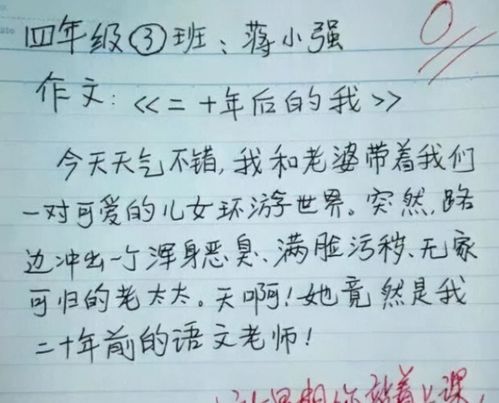 四年级③班：蒋小强
作文：<<二十年后的我>>
今天天气不错，我和老婆带着我们
一对可爱的儿女环游世界。突然，路
边冲出一个浑身恶臭、满脸污秽、无家
可归的老太太。天啊！她竟然是我
二十年前的语文老师！
你站着上课，